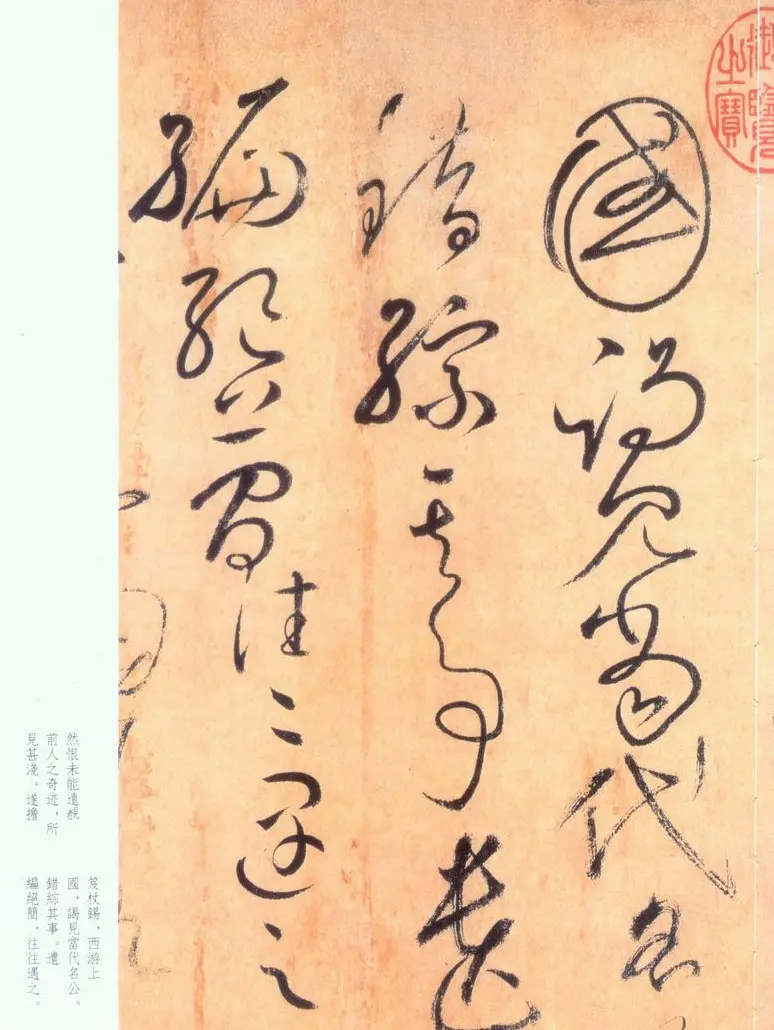 御覽
之寶
國謁見當代名
錯綜其事遺
編絕簡往〻遇之
然恨未能遠覩
前人之奇迹，所
見甚淺。遂擔
笈杖錫，西游上
國，謁見當代名公。
錯綜其事。遺
編絕簡，往往遇之。